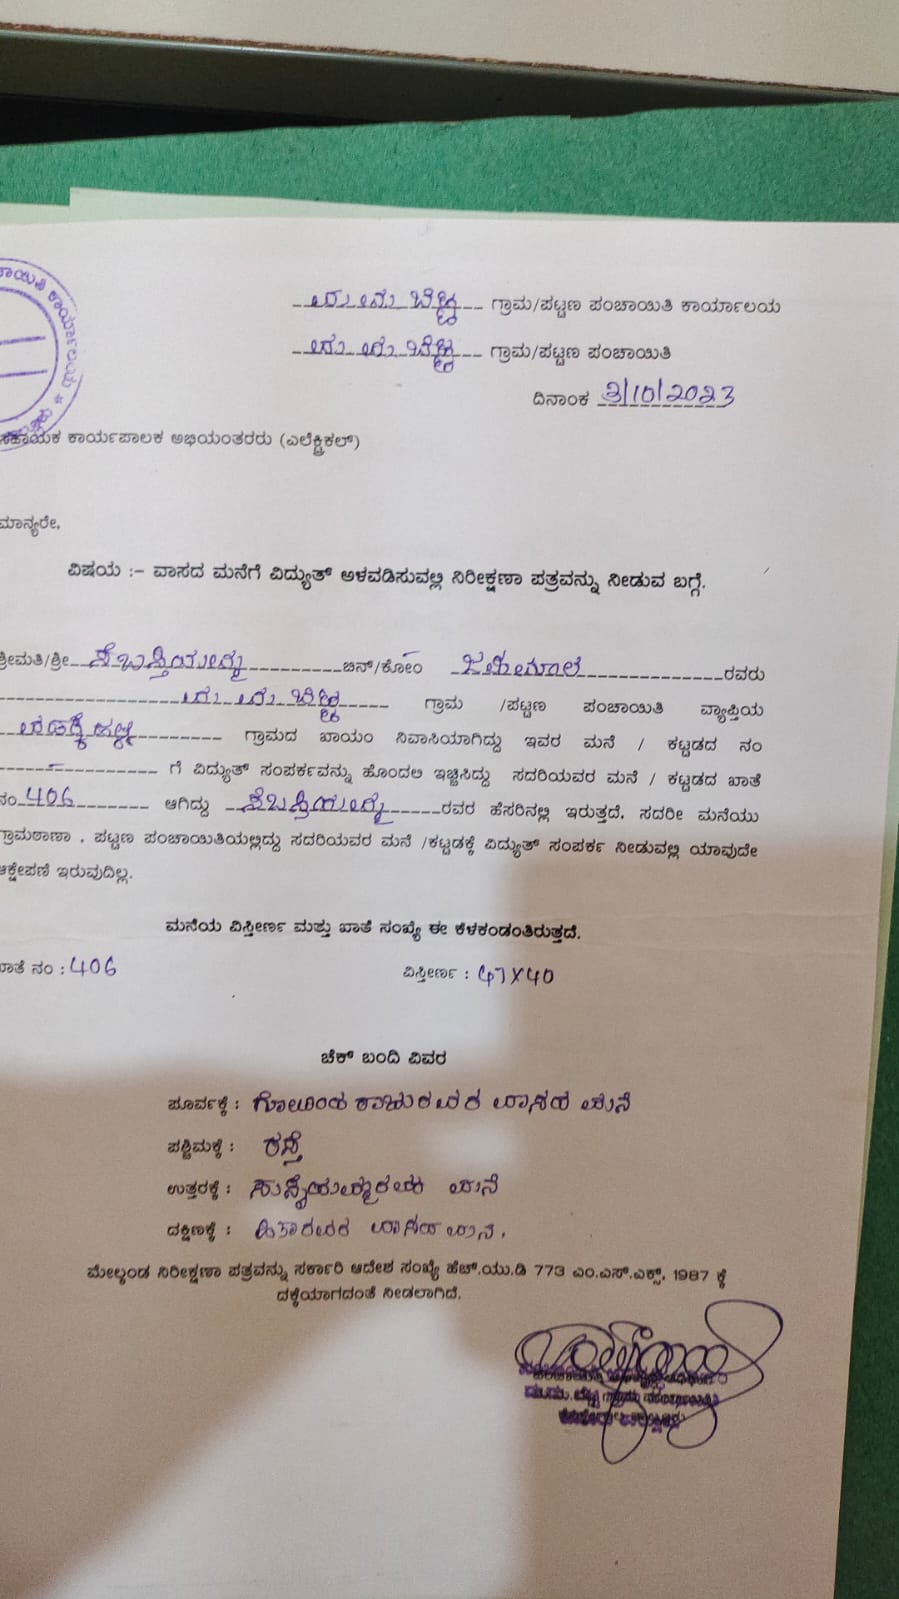 ಕಾರ್ಯಾಲಯ *
ಮ.ಮ.ಬೆಟ್ಟ ಗ್ರಾಮ/ಪಟ್ಟಣ ಪಂಚಾಯಿತಿ ಕಾರ್ಯಾಲಯ
ಮ.ಮ.ಬೆಟ್ಟ ಗ್ರಾಮ/ಪಟ್ಟಣ ಪಂಚಾಯಿತಿ
ದಿನಾಂಕ 3/10/2023
ಸಹಾಯಕ ಕಾರ್ಯಪಾಲಕ ಅಭಿಯಂತರರು (ಎಲೆಕ್ಟ್ರಿಕಲ್)
ಮಾನ್ಯರೇ,
ವಿಷಯ :- ವಾಸದ ಮನೆಗೆ ವಿದ್ಯುತ್ ಅಳವಡಿಸುವಲ್ಲಿ ನಿರೀಕ್ಷಣಾ ಪತ್ರವನ್ನು ನೀಡುವ ಬಗ್ಗೆ.
ಶ್ರೀಮತಿ/ಶ್ರೀ ಸೆಬಸ್ತಿಯಮ್ಮ ಬಿನ್/ಕೋಂ ರವರು
ಮ.ಮ.ಬೆಟ್ಟ ಗ್ರಾಮ /ಪಟ್ಟಣ ಪಂಚಾಯಿತಿ ವ್ಯಾಪ್ತಿಯ
ಗ್ರಾಮದ ಖಾಯಂ ನಿವಾಸಿಯಾಗಿದ್ದು ಇವರ ಮನೆ / ಕಟ್ಟಡದ ನಂ
- ಗೆ ವಿದ್ಯುತ್ ಸಂಪರ್ಕವನ್ನು ಹೊಂದಲ ಇಚ್ಚಿಸಿದ್ದು ಸದರಿಯವರ ಮನೆ / ಕಟ್ಟಡದ ಖಾತೆ
ನಂ 406 ಆಗಿದ್ದು ಸೆಬಸ್ತಿಯಮ್ಮ ರವರ ಹೆಸರಿನಲ್ಲಿ ಇರುತ್ತದೆ, ಸದರೀ ಮನೆಯು
ಗ್ರಾಮಠಾಣಾ , ಪಟ್ಟಣ ಪಂಚಾಯಿತಿಯಲ್ಲಿದ್ದು ಸದರಿಯವರ ಮನೆ /ಕಟ್ಟಡಕ್ಕೆ ವಿದ್ಯುತ್ ಸಂಪರ್ಕ ನೀಡುವಲ್ಲಿ ಯಾವುದೇ
ಆಕ್ಷೇಪಣೆ ಇರುವುದಿಲ್ಲ.
ಮನೆಯ ವಿಸ್ತೀರ್ಣ ಮತ್ತು ಖಾತೆ ಸಂಖ್ಯೆ ಈ ಕೆಳಕಂಡಂತಿರುತ್ತದೆ.
ಖಾತೆ ನಂ : 406 ವಿಸ್ತೀರ್ಣ : 47X40
ಚೆಕ್ ಬಂದಿ ವಿವರ
ಪೂರ್ವಕ್ಕೆ : ಗೋವಿಂದ ರಾಜುರವರ ವಾಸದ ಮನೆ
ಪಶ್ಚಿಮಕ್ಕೆ : ರಸ್ತೆ
ಉತ್ತರಕ್ಕೆ : ಮನೆ
ದಕ್ಷಿಣಕ್ಕೆ : ವಾಸದ ಮನೆ.
ಮೇಲ್ಕಂಡ ನಿರೀಕ್ಷಣಾ ಪತ್ರವನ್ನು ಸರ್ಕಾರಿ ಆದೇಶ ಸಂಖ್ಯೆ ಹೆಚ್.ಯು.ಡಿ 773 ಎಂ.ಎಸ್.ಎಕ್ಸ್, 1987 ಕ್ಕೆ
ದಕ್ಕೆಯಾಗದಂತೆ ನೀಡಲಾಗಿದೆ.
ಮ.ಮ.ಬೆಟ್ಟ ಗ್ರಾಮ ಪಂಚಾಯಿತಿ